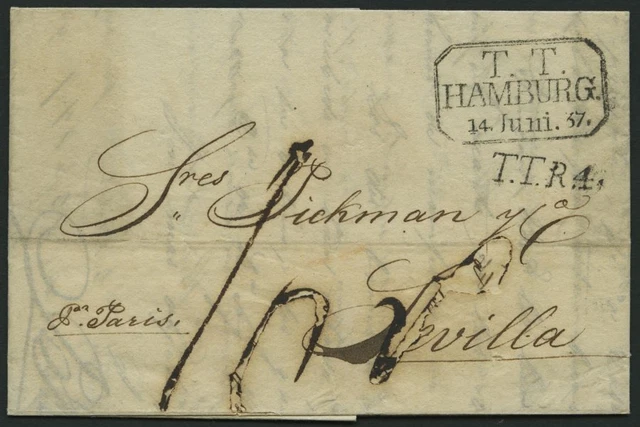 T. T.
HAMBURG.
14. Juni. 37.
T.T.R.4.
Sres Pickman y Ca
Sevilla
Pr. Paris.